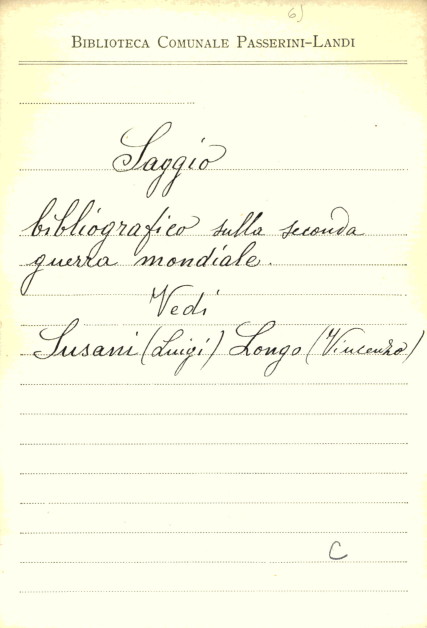 6)
BIBLIOTECA COMUNALE PASSERINI-LANDI
Saggio
bibliografico sulla seconda
guerra mondiale.
Vedi
Susani (Luigi) Longo (Vincenzo)
C